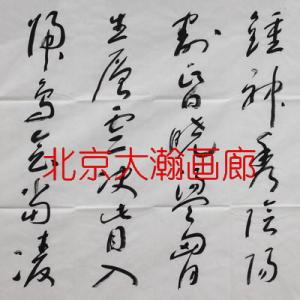 鍾神秀陰陽
割昏曉盪胸
生層雲决眥入
歸鳥會當凌
北京大瀚画廊